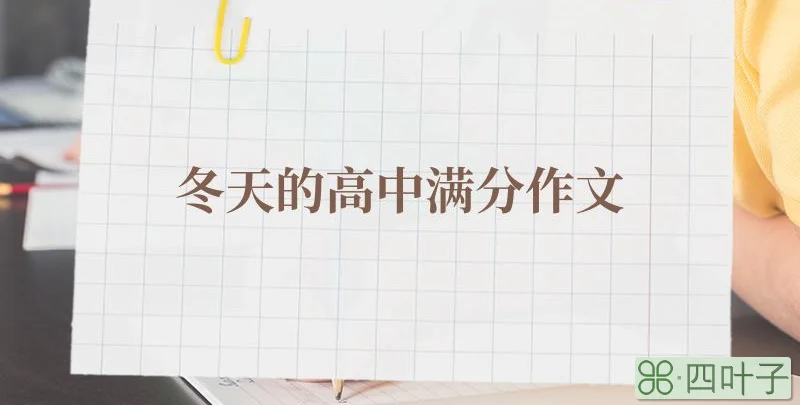 冬天的高中满分作文
四叶子